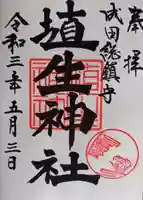 奉拝
成田総鎮守
埴生神社
令和三年五月三日